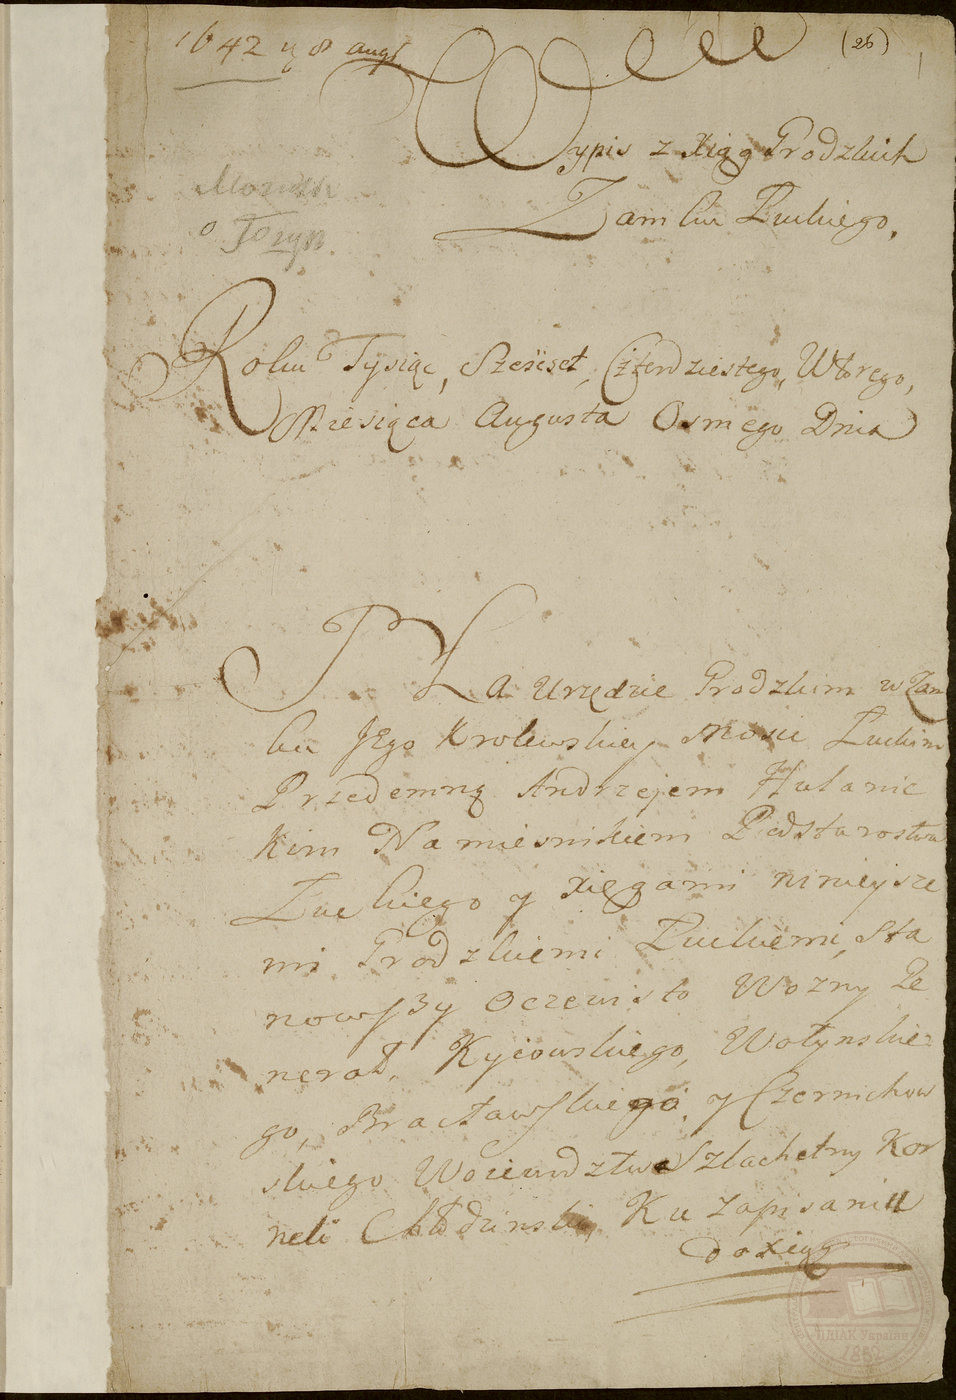 1642 y 8 augt
(26)
Wypis z Xiąg Grodzkich
Zamku Łuckiego.
Roku Tysiąc, Szescset, Czterdziestego, Wtorego,
Miesiąca Augusta Osmego Dnia
Na Urzędzie Grodzkim w Zam
ku JEgo Krolewskiey Mosci Łuckim
Przedemną Andrzejem Hulanic
kim Namiesnikiem Podstarostwa
Łuckiego y Xięgami ninieysze
mi Grodzkiemi Łuckiemi, sta
nowszy Oczewisto Wozny Je
nerał. Kyiowskiego, Wołynskie=
go, Bracławskiego, y Czernichow
skiego Woiewodztw Szlachetny Kor
neli Ku Zapisaniu
do Xiąg
ЦДІАК України
1852